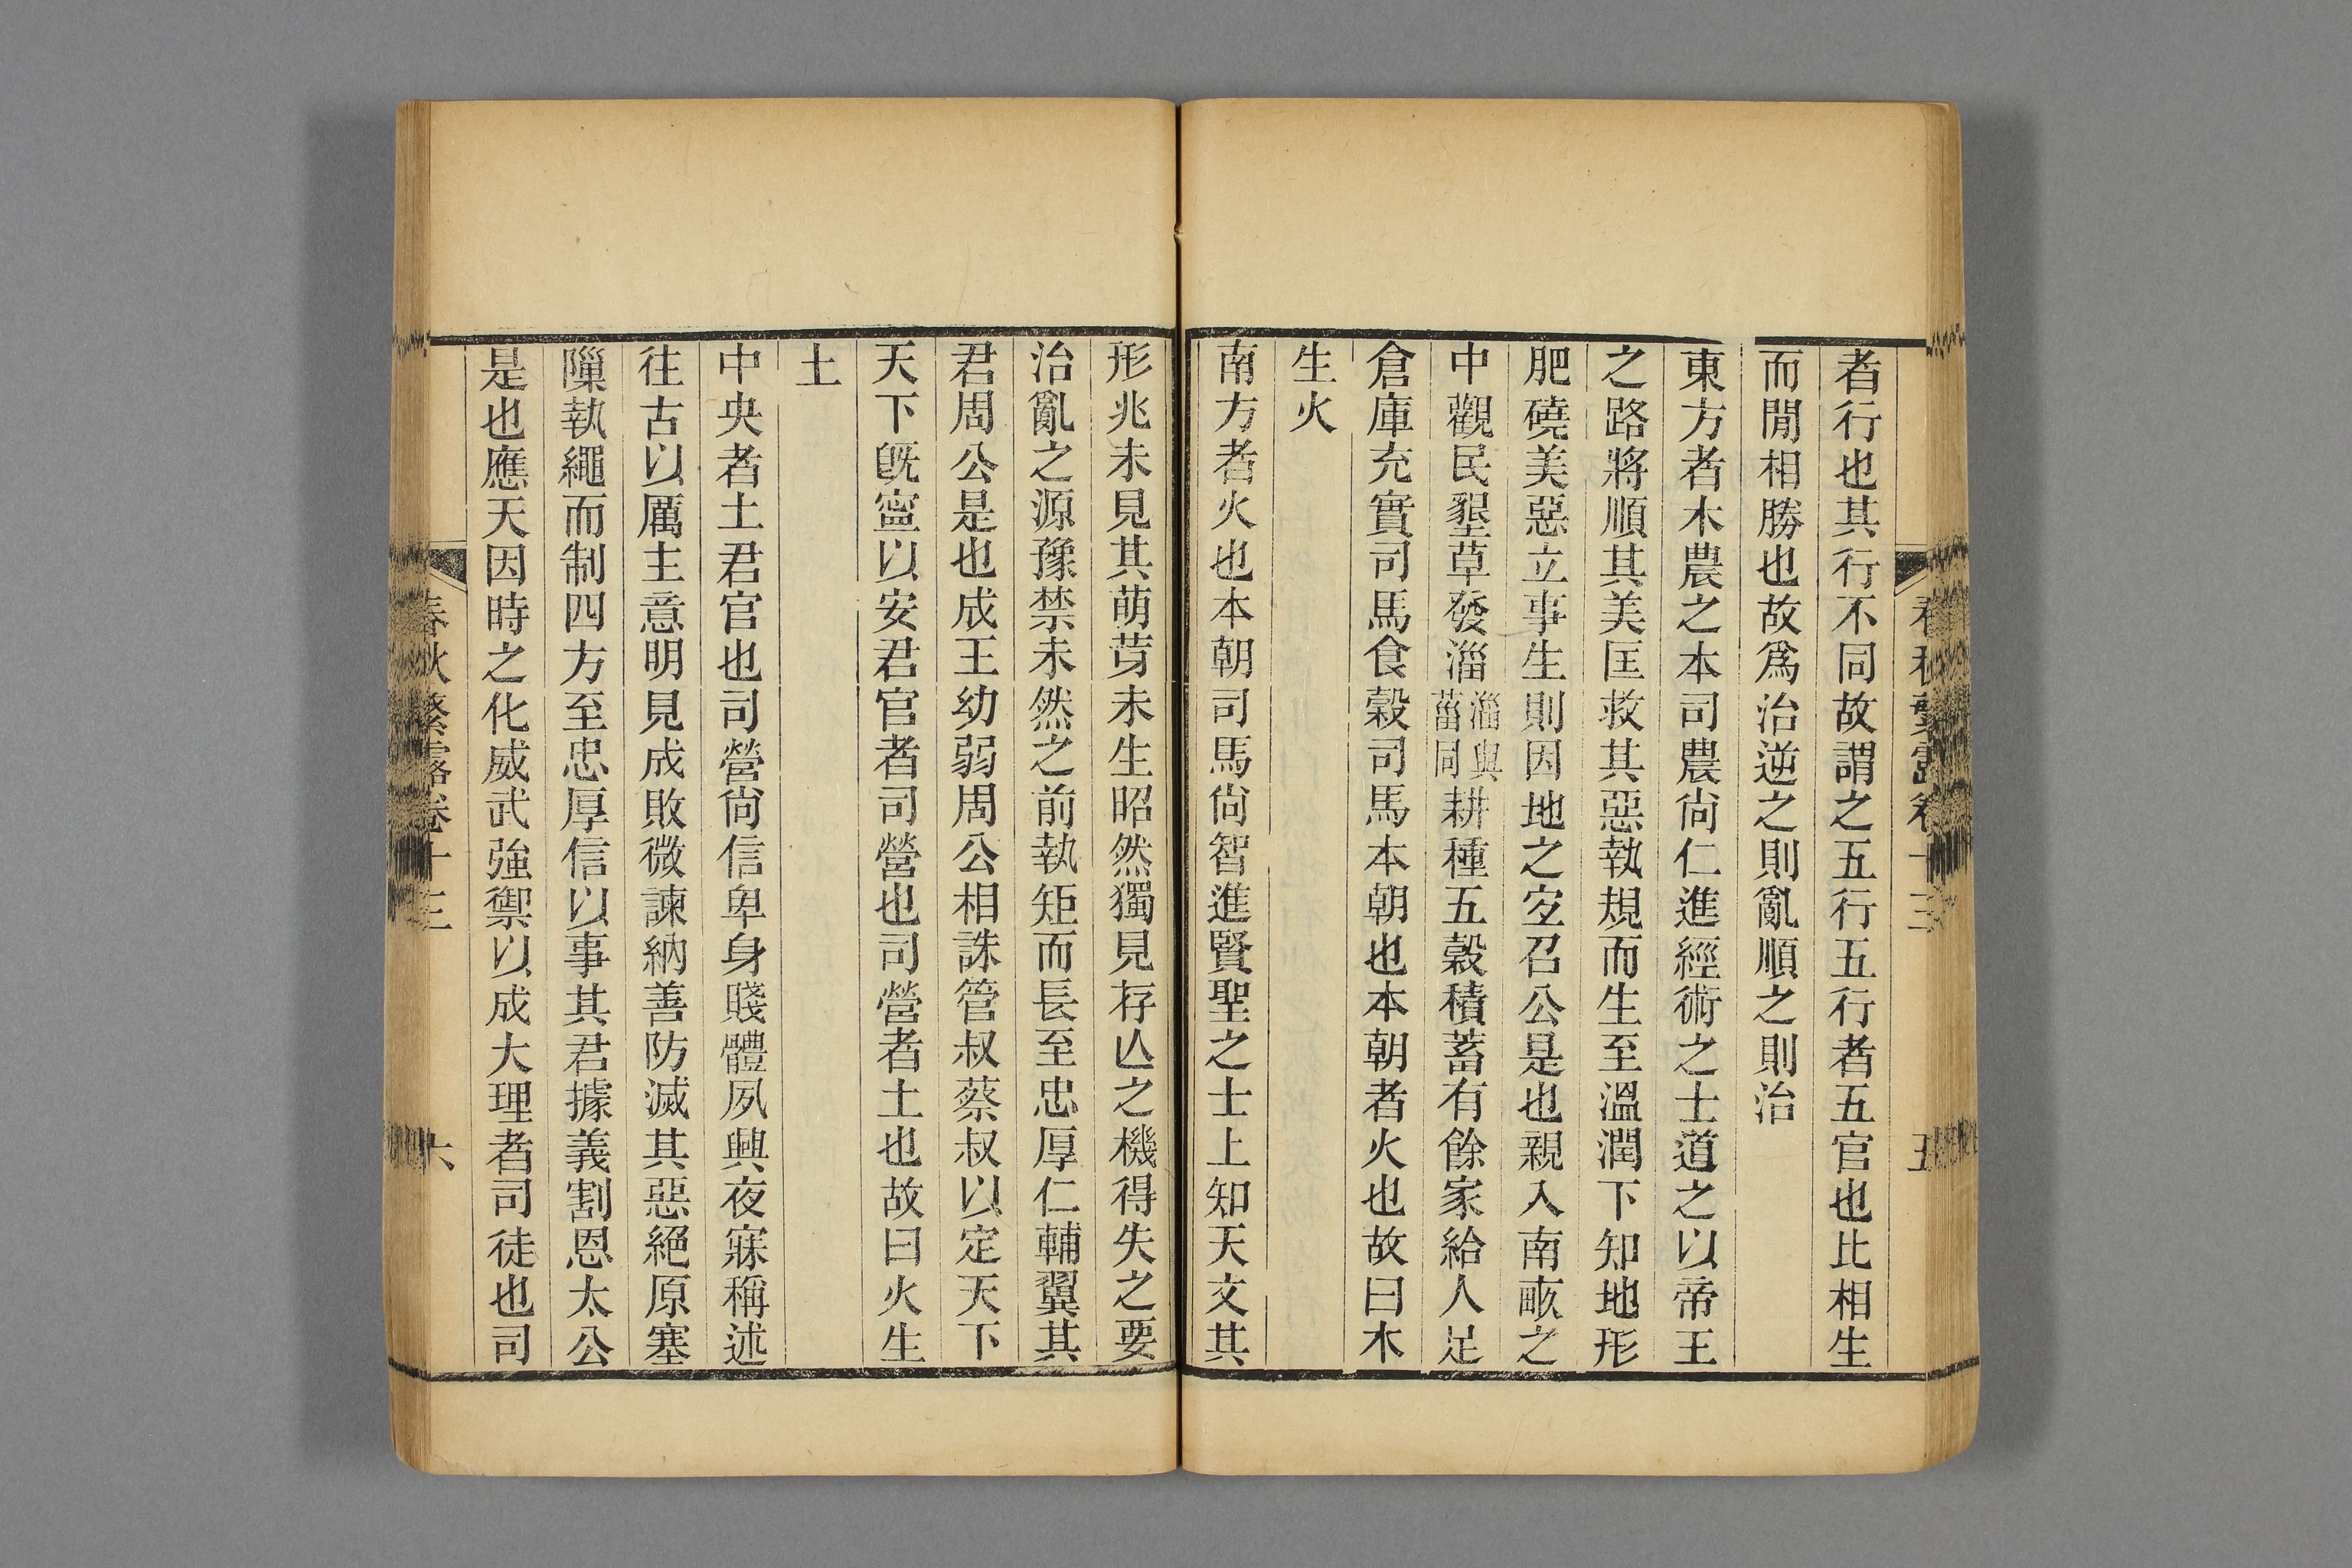 春秋繁露卷十三
五
者行也其行不同故謂之五行五行者五官也比相生
而閒相勝也故爲治逆之則亂順之則治
東方者木農之本司農尚仁進經術之士道之以帝王
之路將順其美匡救其惡執規而生至溫潤下知地形
肥磽美惡立事生則因地之宐召公是也親入南畞之
中觀民墾草發淄淄與菑同耕種五穀積蓄有餘家給人足
倉庫充實司馬食穀司馬本朝也本朝者火也故曰木
生火
南方者火也本朝司馬尚智進賢聖之士上知天文其
形兆未見其萌芽未生昭然獨見存亾之機得失之要
治亂之源豫禁未然之前執矩而長至忠厚仁輔翼其
君周公是也成王幼弱周公相誅管叔蔡叔以定天下
天下既寍以安君官者司營也司營者土也故曰火生
土
中央者土君官也司營尚信卑身賤體夙興夜寐稱述
往古以厲主意明見成敗微諫納善防滅其惡絕原塞
𨻶執繩而制四方至忠厚信以事其君據義割恩太公
是也應天因時之化威武強禦以成大理者司徒也司
春秋繁露卷十三
六